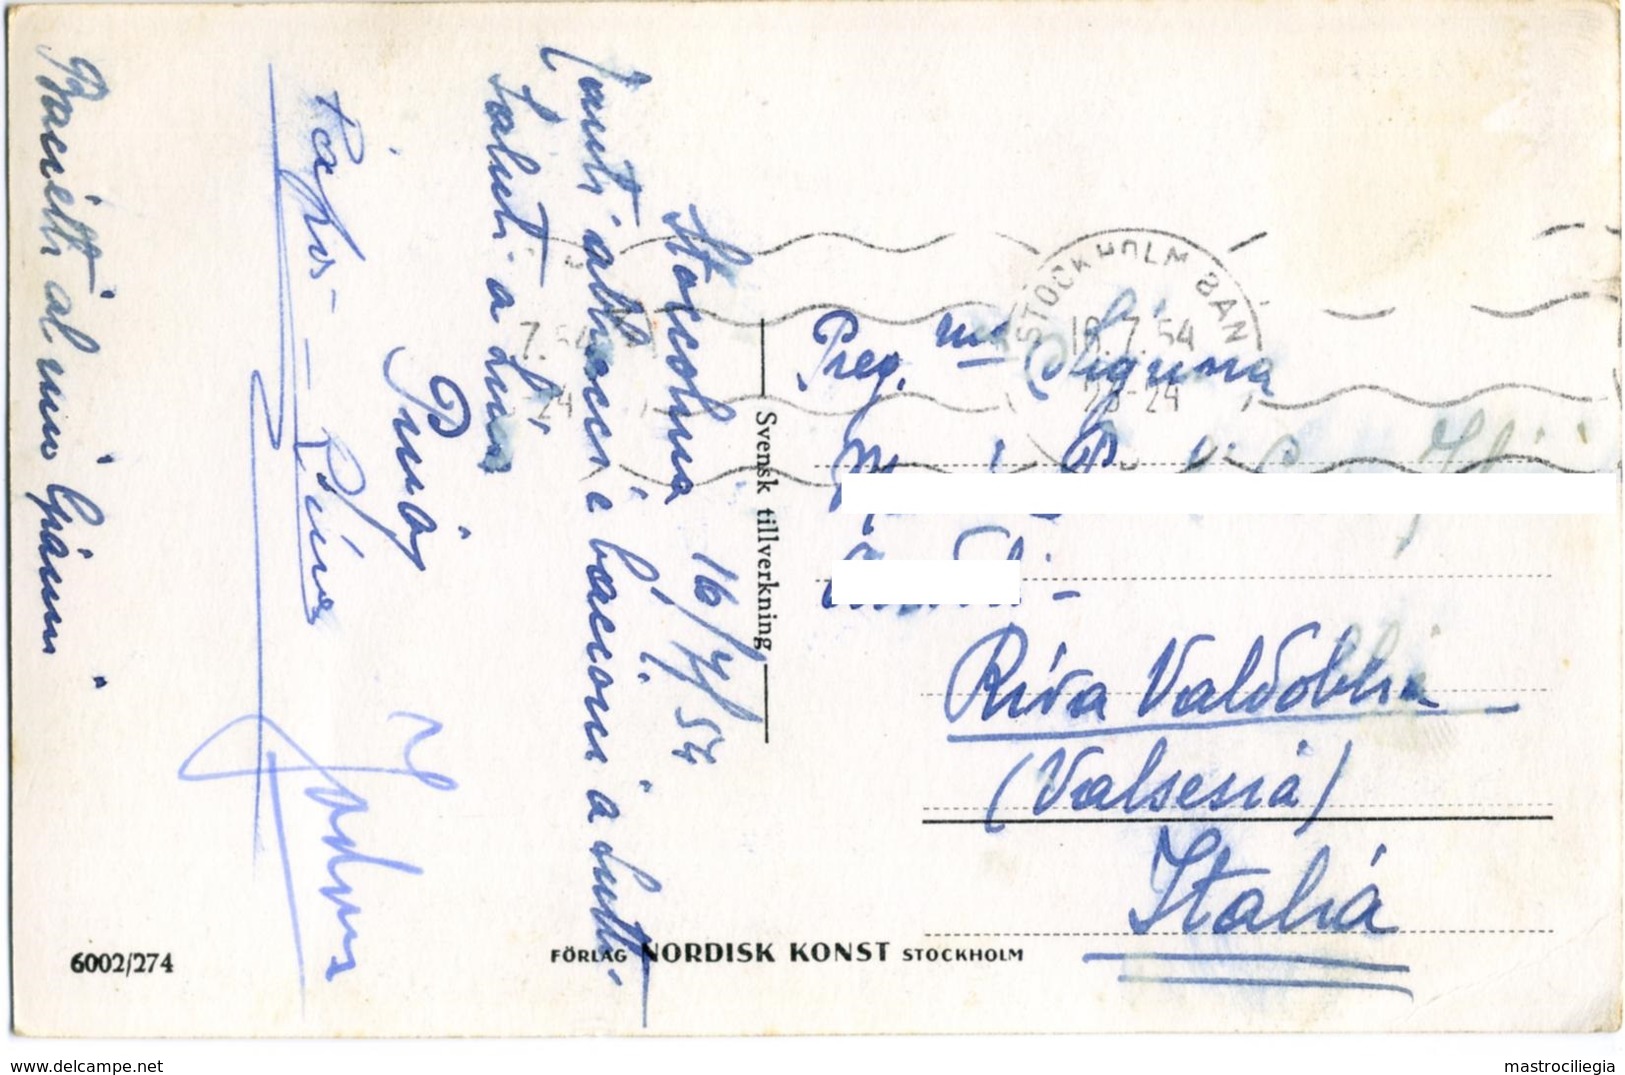 Stoccolma 16/7/54
Tanti abbracci e bacioni a tutti
Saluti a Lina
Pinóg
Bacietti al mio Gianni
Svensk tillverkning
STOCKHOLM BAN
18.7.54
23-24
7.54
-24
Preg.ma Signora
Riva Valdobbia
(Valsesia)
Italia
6002/274
FÖRLAG NORDISK KONST STOCKHOLM
https://www.delcampe.net
mastrociliegia